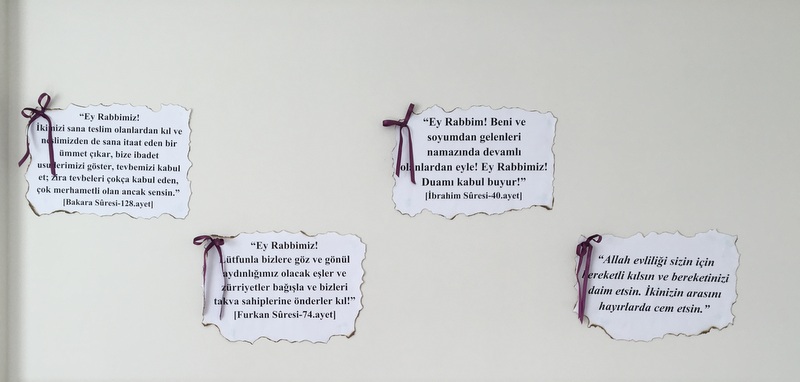 “Ey Rabbimiz!
İkimizi sana teslim olanlardan kıl ve
neslimizden de sana itaat eden bir
ümmet çıkar, bize ibadet
usullerimizi göster, tevbemizi kabul
et; zira tevbeleri çokça kabul eden,
çok merhametli olan ancak sensin.”
[Bakara Sûresi-128.ayet]
“Ey Rabbimiz!
Lütfunla bizlere göz ve gönül
aydınlığımız olacak eşler ve
zürriyetler bağışla ve bizleri
takva sahiplerine önderler kıl!”
[Furkan Sûresi-74.ayet]
“Ey Rabbim! Beni ve
soyumdan gelenleri
namazında devamlı
olanlardan eyle! Ey Rabbimiz!
Duamı kabul buyur!”
[İbrahim Sûresi-40.ayet]
“Allah evliliği sizin için
bereketli kılsın ve bereketinizi
daim etsin. İkinizin arasını
hayırlarda cem etsin.”